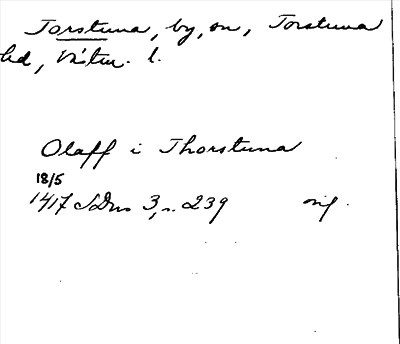 Torstuna, by, sn, Torstuna
hd, Västm. l.
Olaff i Thorstuna
18/5
1417 SDns 3, s. 239 orig.